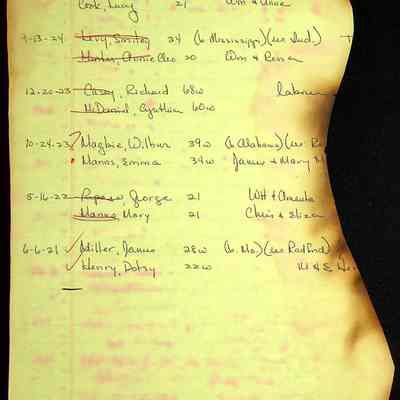 Cook, Lucy 21 Wm & Anne
4-23-24 Levy, Smiley 24 (b. Mississippi) (res Ind.)
Hunter, Annie Cleo 20 Wm &
12-20-23 Casey, Richard 68w labor
McDaniel, Cynthia 60w
10-24-23 ? Magbie, Wilbur 39w (b. Alabama) (res
Manns, Emma 34w James & Mary M
5-16-22 George 21 Will &
Manns, Mary 21 Chris & Eliza
6-6-21 ✓ Miller, James 28w (b. Mo.) (res Radford)
✓ Henry, Dotsy 22w W & E Hen